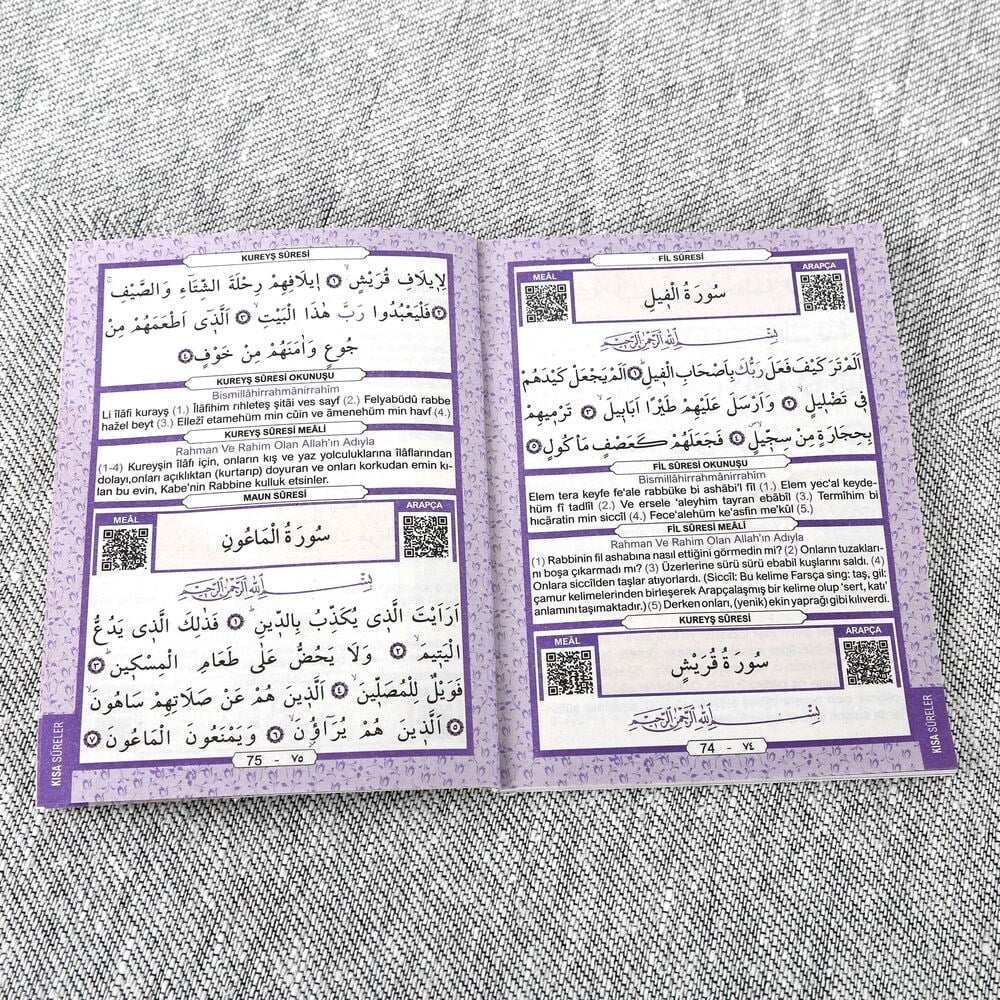 FİL SÛRESİ
MEÂL
ARAPÇA
سُورَةُ الْفِيلِ
بِسْمِ اللّٰهِ الرَّحْمٰنِ الرَّحِيمِ
اَلَمْ تَرَ كَيْفَ فَعَلَ رَبُّكَ بِاَصْحَابِ الْفِيلِ ١ اَلَمْ يَجْعَلْ كَيْدَهُمْ
فِى تَضْلِيلٍ ٢ وَاَرْسَلَ عَلَيْهِمْ طَيْرًا اَبَابِيلَ ٣ تَرْمِيهِمْ
بِحِجَارَةٍ مِنْ سِجِّيلٍ ٤ فَجَعَلَهُمْ كَعَصْفٍ مَأْكُولٍ ٥
FİL SÛRESİ OKUNUŞU
Bismillâhirrahmânirrahîm
Elem tera keyfe fe'ale rabbüke bi ashâbi'l fîl (1.) Elem yec'al keyde-
hüm fî tadlîl (2.) Ve ersele 'aleyhim tayran ebâbîl (3.) Termîhim bi
hıcâratin min siccîl (4.) Fece'alehüm ke'asfin me'kûl (5.)
FİL SÛRESİ MEÂLİ
Rahman Ve Rahim Olan Allah'ın Adıyla
(1) Rabbinin fil ashabına nasıl ettiğini görmedin mi? (2) Onların tuzakları-
nı boşa çıkarmadı mı? (3) Üzerlerine sürü sürü ebabil kuşlarını saldı. (4)
Onlara siccîlden taşlar atıyorlardı. (Siccîl: Bu kelime Farsça sing: taş, gil:
çamur kelimelerinden birleşerek Arapçalaşmış bir kelime olup 'sert, katı'
anlamını taşımaktadır.) (5) Derken onları, (yenik) ekin yaprağı gibi kılıverdi.
KUREYŞ SÛRESİ
MEÂL
ARAPÇA
سُورَةُ قُرَيْشٍ
بِسْمِ اللّٰهِ الرَّحْمٰنِ الرَّحِيمِ
74 - ٧٤
KISA SÛRELER
KUREYŞ SÛRESİ
لِإِيلَافِ قُرَيْشٍ ١ إِيلَافِهِمْ رِحْلَةَ الشِّتَاءِ وَالصَّيْفِ
٢ فَلْيَعْبُدُوا رَبَّ هٰذَا الْبَيْتِ ٣ اَلَّذِى اَطْعَمَهُمْ مِنْ
جُوعٍ وَاٰمَنَهُمْ مِنْ خَوْفٍ ٤
KUREYŞ SÛRESİ OKUNUŞU
Bismillâhirrahmânirrahîm
Li îlâfi kurayş (1.) İlâfihim rıhleteş şitâi ves sayf (2.) Felyabüdû rabbe
hazel beyt (3.) Ellezî etamehüm min cûin ve âmenehüm min havf (4.)
KUREYŞ SÛRESİ MEÂLİ
Rahman Ve Rahim Olan Allah'ın Adıyla
(1-4) Kureyşin îlâfı için, onların kış ve yaz yolculuklarına îlâflarından
dolayı,onları açıklıktan (kurtarıp) doyuran ve onları korkudan emin kı-
lan bu evin, Kabe'nin Rabbine kulluk etsinler.
MAUN SÛRESİ
MEÂL
ARAPÇA
سُورَةُ الْمَاعُونِ
بِسْمِ اللّٰهِ الرَّحْمٰنِ الرَّحِيمِ
اَرَاَيْتَ الَّذِى يُكَذِّبُ بِالدِّينِ ١ فَذٰلِكَ الَّذِى يَدُعُّ
الْيَتِيمَ ٢ وَلَا يَحُضُّ عَلٰى طَعَامِ الْمِسْكِينِ ٣
فَوَيْلٌ لِلْمُصَلِّينَ ٤ اَلَّذِينَ هُمْ عَنْ صَلَاتِهِمْ سَاهُونَ
٥ اَلَّذِينَ هُمْ يُرَآؤُنَ ٦ وَيَمْنَعُونَ الْمَاعُونَ ٧
75 - ٧٥
KISA SÛRELER